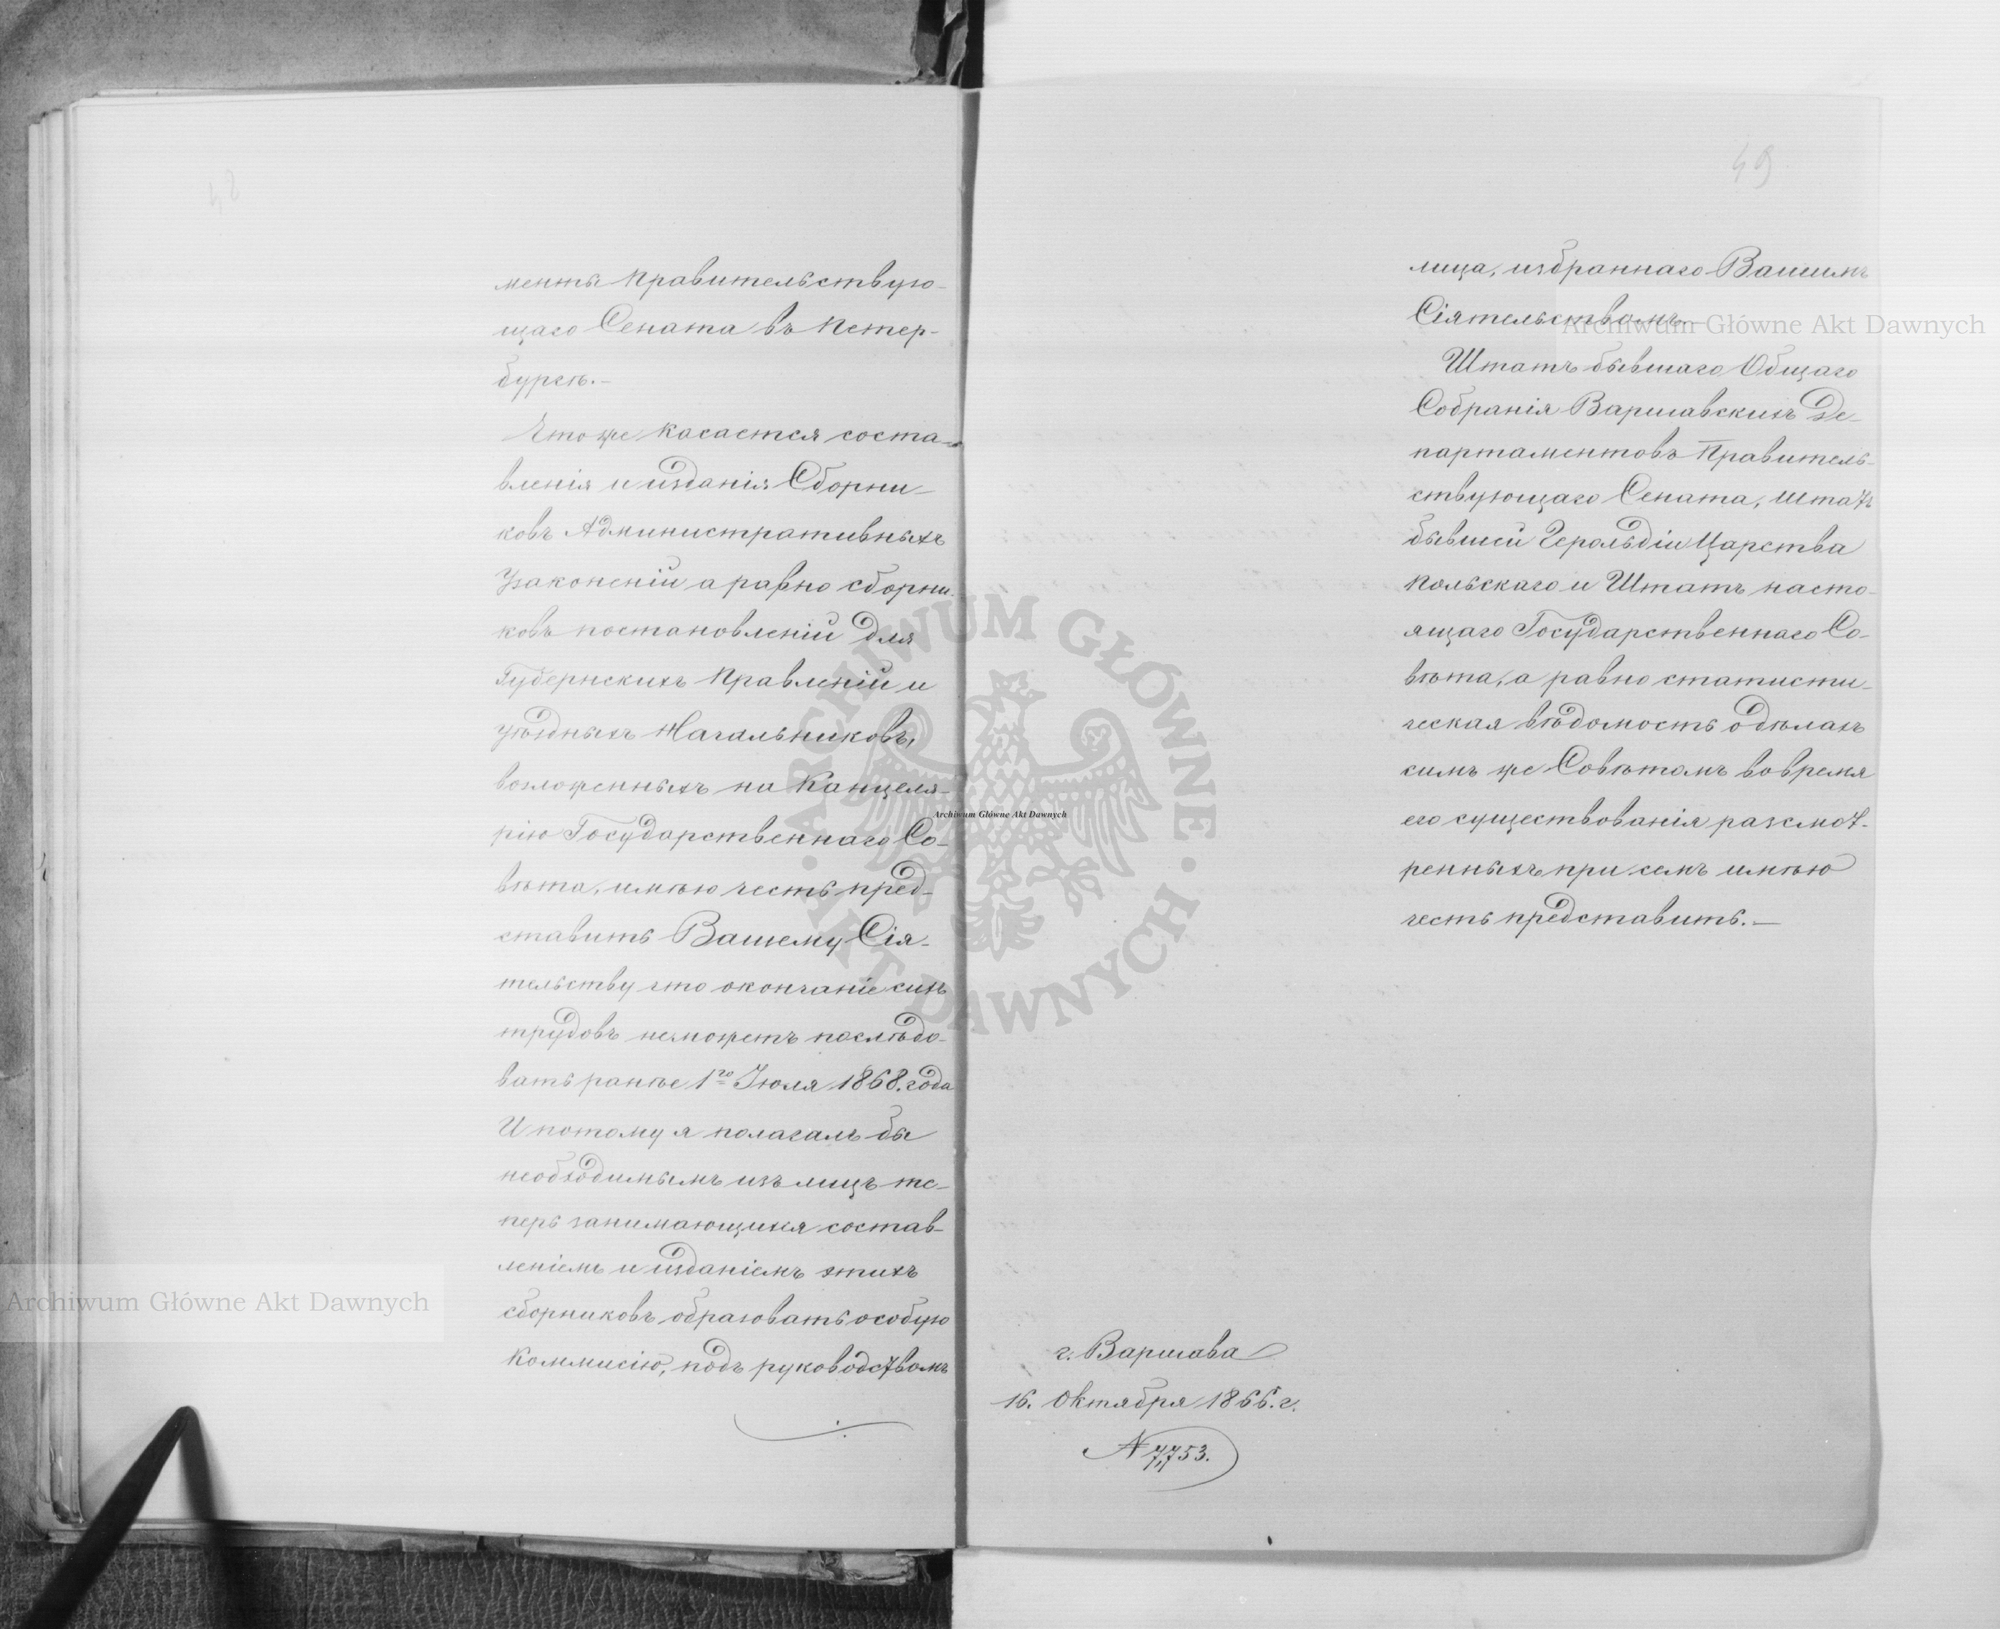 48
менты Правительствую-
щаго Сената въ Петер-
бургѣ.-
Что же касается соста-
вленія и изданія Сборни-
ковъ Административныхъ
Узаконеній а равно сборни-
ковъ постановленій для
Губернскихъ Правленій и
уѣздныхъ Начальниковъ,
возложенныхъ на Канцеля-
рію Государственнаго Со-
вѣта, имѣю честь пред-
ставить Вашему Сія-
тельству что окончаніе сихъ
трудовъ неможетъ послѣдо-
вать ранѣе 1го Июля 1868. года
И потому я полагалъ бы
необходимымъ изъ лицъ те-
перь занимающихся состав-
леніемъ и изданіемъ этихъ
сборниковъ образовать особую
Коммисію, подъ руководствомъ
49
лица, избраннаго Вашимъ
Сіятельствомъ.-
Штатъ бывшаго Общаго
Собранія Варшавскихъ Де-
партаментовъ Правитель-
ствующаго Сената, штатъ
бывшей Герольдіи Царства
Польскаго и Штатъ насто-
ящаго Государственнаго Со-
вѣта, а равно статисти-
ческая вѣдомость о дѣлахъ
симъ же Совѣтомъ вовремя
его существованія разсмот-
ренныхъ при семъ имѣю
честь представить.-
г. Варшава
16. Октября 1866. г.
N 7,753.
Archiwum Główne Akt Dawnych
Archiwum Główne Akt Dawnych
Archiwum Główne Akt Dawnych
ARCHIWUM GŁÓWNE · AKT DAWNYCH ·